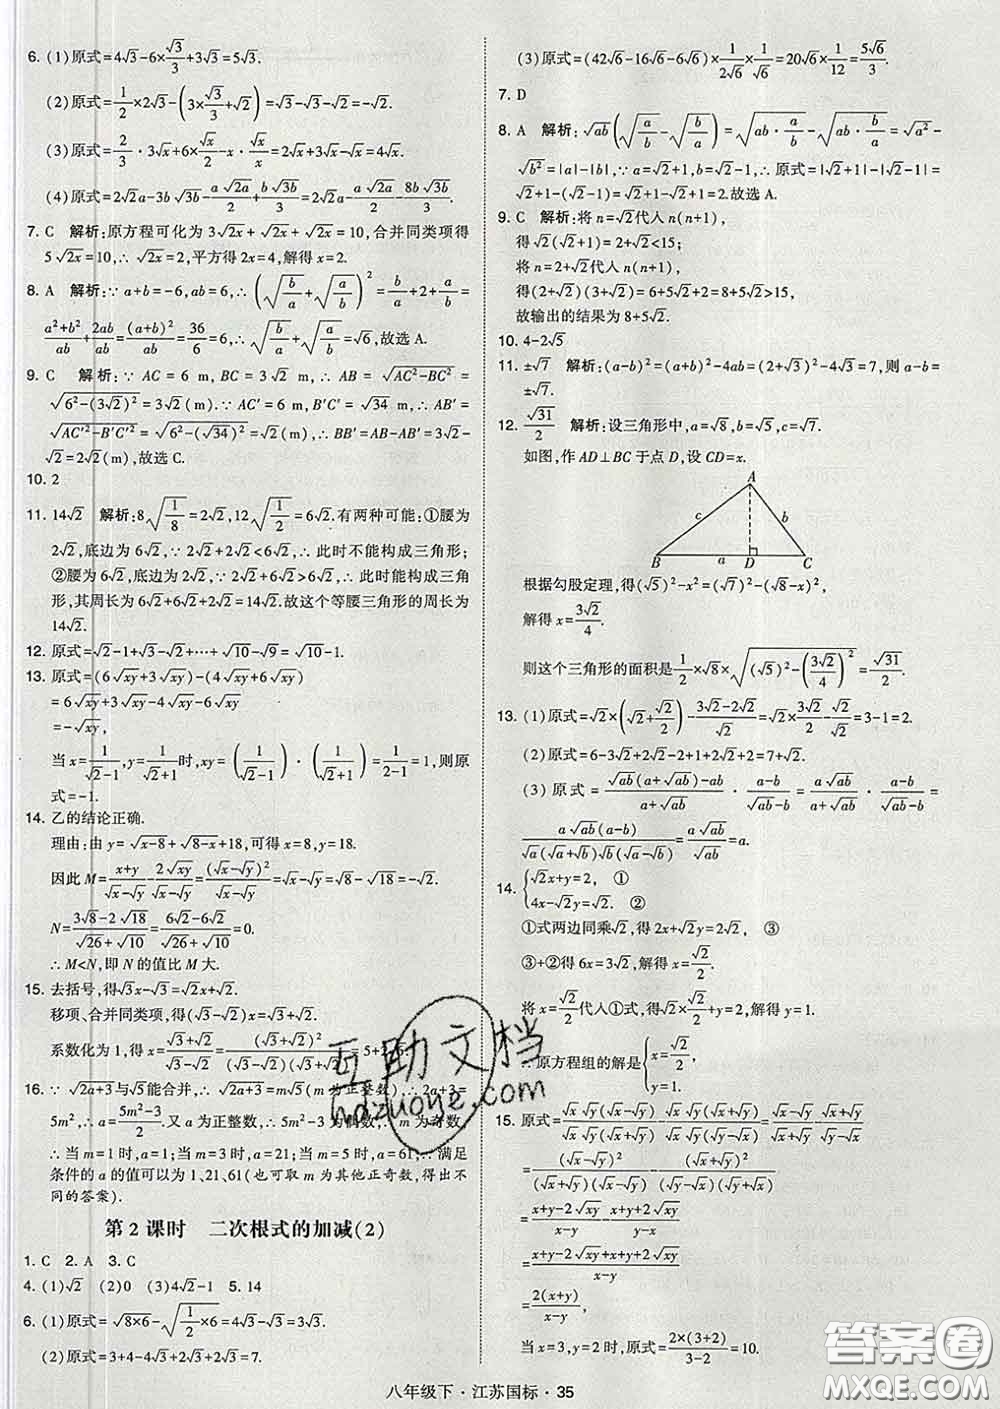 6. (1)原式=4√3-6×√3/3+3√3=5√3.
(2)原式=1/2×2√3-(3×√3/3+√2)=√3-√3-√2=-√2.
(3)原式=2/3·3√x+6×√x/2-x·√x/x=2√x+3√x-√x=4√x.
(4)原式=2√2a-3b√3b-a√2a/2+b√3b/2=2√2a-a√2a/2-8b√3b/2.
7. C 解析:原方程可化为3√2x+√2x+√2x=10,合并同类项得
5√2x=10,∴√2x=2,平方得2x=4,解得x=2.
8. A 解析:∵a+b=-6,ab=6,∴(√(b/a)+√(a/b))²=b/a+2+a/b=
(a²+b²)/ab+2ab/ab=(a+b)²/ab=36/6=6,∴√(b/a)+√(a/b)=√6,故选A.
9. C 解析:∵AC=6 m,BC=3√2 m,∴AB=√(AC²-BC²)=
√(6²-(3√2)²)=3√2(m).∵AC′=6 m,B′C′=√34 m,∴AB′=
√(AC′²-B′C′²)=√(6²-(√34)²)=√2(m),∴BB′=AB-AB′=3√2-
√2=2√2(m),故选C.
10. 2
11. 14√2 解析:8√(1/8)=2√2,12√(1/2)=6√2.有两种可能:①腰为
2√2,底边为6√2,∵2√2+2√2<6√2,∴此时不能构成三角形;
②腰为6√2,底边为2√2,∵此时能构成三角形,∴此时能构成三角
形,其周长为6√2+6√2+2√2=14√2.故这个等腰三角形的周长为
14√2.
12. 原式=√2-1+√3-√2+⋯+√10-√9=√10-1.
13. 原式=(6√xy+3√xy)-(4√xy+6√xy)
=6√xy+3√xy-4√xy-6√xy
=-√xy,
当x=1/(√2-1),y=1/(√2+1)时,xy=(1/(√2-1))·(1/(√2+1))=1/(2-1)=1,则原
式=-1.
14. 乙的结论正确.
理由:由y=√(x-8)+√(8-x)+18,可得x=8,y=18.
因此M=(x+y)/(√x-√y)-2√xy/(√x-√y)=(√x-√y)²/(√x-√y)=√x-√y=√8-√18=-√2.
N=(3√8-2√18)/(√26+√10)=(6√2-6√2)/(√26+√10)=0.
∴M<N,即N的值比M大.
15. 去括号,得√3x-√3=√2x+√2.
移项、合并同类项,得(√3-√2)x=√3+√2.
系数化为1,得x=(√3+√2)/(√3-√2)=(√3+√2)²/(√3-√2)(√3+√2)=5+2
16. ∵√(2a+3)与√5能合并,∴√(2a+3)=m√5(m为正整数),∴2a+3=
5m²,∴a=(5m²-3)/2.又∵a为正整数,∴5m²-3为偶数,∴m为奇数,
∴当m=1时,a=1;当m=3时,a=21;当m=5时,a=61,∴满足
条件的a的值可以为1,21,61(也可以m为其他正奇数,得出
不同的答案).
第2课时 二次根式的加减(2)
1. C 2. A 3. C
4. (1)√2 (2)0 (3)4√2-1 5. 14
6. (1)原式=√(8×6)-√(1/2×6)=4√3-√3=3√3.
(2)原式=3+4-4√3-2√3+2√3=7.
(3)原式=(42√6-16√6-6√6)×1/(2√6)×1/√6=20√6×1/12=5√6/3.
7. D
8. A 解析:√ab(√(a/b)-√(b/a))=√(ab·a/b)-√(ab·b/a)=√a²-
√b²=|a|-|b|,∵a=√2+1,b=√2-1,∴原式=|√2+1|-|√2-1|=
√2+1-(√2-1)=√2+1-√2+1=2.故选A.
9. C 解析:将n=√2代入n(n+1),
得√2(√2+1)=2+√2<15;
将n=2+√2代入n(n+1),
得(2+√2)(3+√2)=6+5√2+2=8+5√2>15,
故输出的结果为8+5√2.
10. 4-2√5
11. ±√7 解析:(a-b)²=(a+b)²-4ab=(2+√3)²-4√3=7,则a-b=
±√7.
12. √31/2 解析:设三角形中,a=√8,b=√5,c=√7.
如图,作AD⊥BC于点D,设CD=x.
A
c b
B a D C
根据勾股定理,得(√5)²-x²=(√7)²-(√8-x)²,
解得x=3√2/4.
则这个三角形的面积是1/2×√8×√((√5)²-(3√2/4)²)=√31/2.
13. (1)原式=√2×(√2+√2/2)-(3√2-2√2)/√2=√2×3√2/2-√2/√2=3-1=2.
(2)原式=6-3√2+2√2-2+1+2√2+2=7+√2.
(3)原式=(√ab(a+√ab)-ab)/(a+√ab)·(a-b)/(√ab-b)=a√ab/(a+√ab)·(a-b)/(√ab-b)=
a√ab(a-b)/(√a(√a+√b)√b(√a-√b))=a√ab/√ab=a.
14. {√2x+y=2, ①
4x-√2y=√2. ②
①式两边同乘√2,得2x+√2y=2√2, ③
③+②得6x=3√2,解得x=√2/2.
将x=√2/2代入①式,得√2×√2/2+y=2,解得y=1.
∴原方程组的解是{x=√2/2,
y=1.
15. 原式=√x√y(√x-√y)/√x√y(√x+√y)+√x√y(√x+√y)/√x√y(√x-√y)
=(√x-√y)²/(√x+√y)(√x-√y)+(√x+√y)²/(√x+√y)(√x-√y)
=(x+y-2√xy)/(x-y)+(x+y+2√xy)/(x-y)
=(x+y-2√xy+x+y+2√xy)/(x-y)
=2(x+y)/(x-y),
当x=3,y=2时,原式=2×(3+2)/(3-2)=10.
八年级下·江苏国标·35
互助文档
hdzuoye.com
答案圈
MXQE.COM